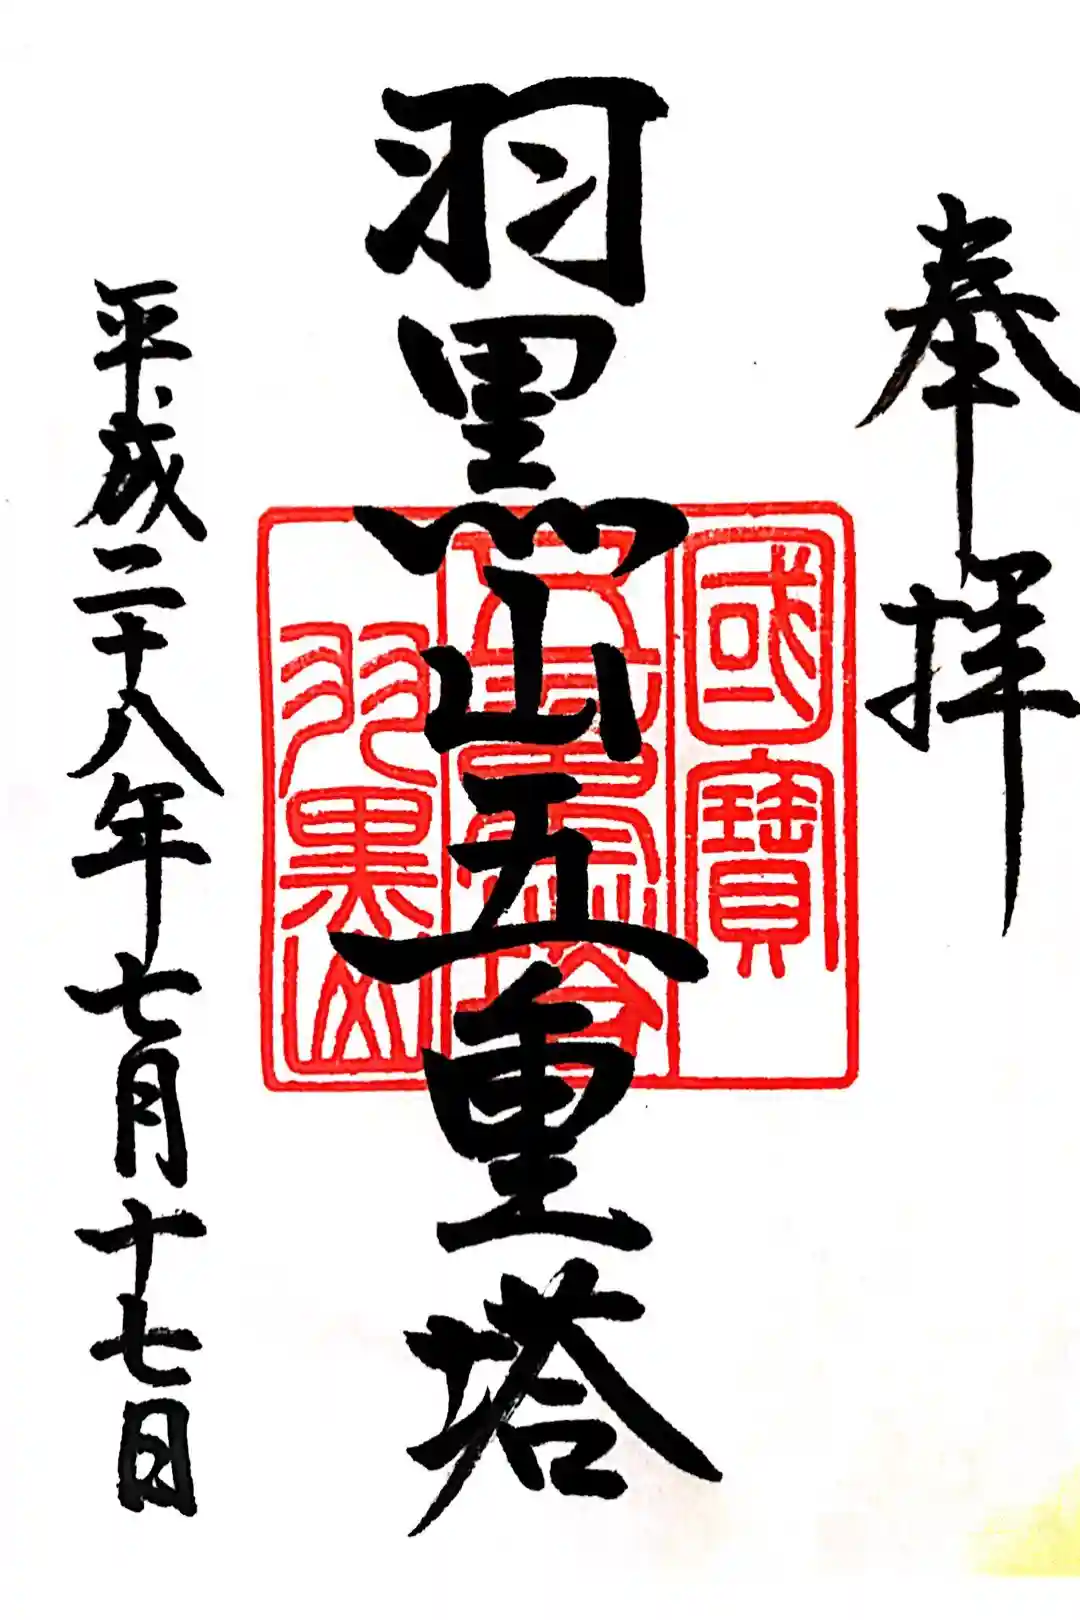 奉拝
羽黒山五重塔
平成二十八年七月十七日
國寶
五重塔
羽黒山